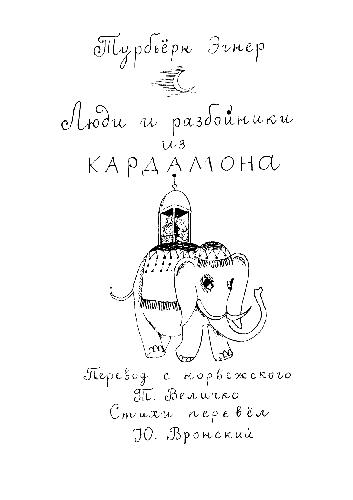 Турбьёрн Эгнер
Люди и разбойники
из
КАРДАМОНА
Перевод с норвежского
Т. Величко
Стихи перевёл
Ю. Вронский